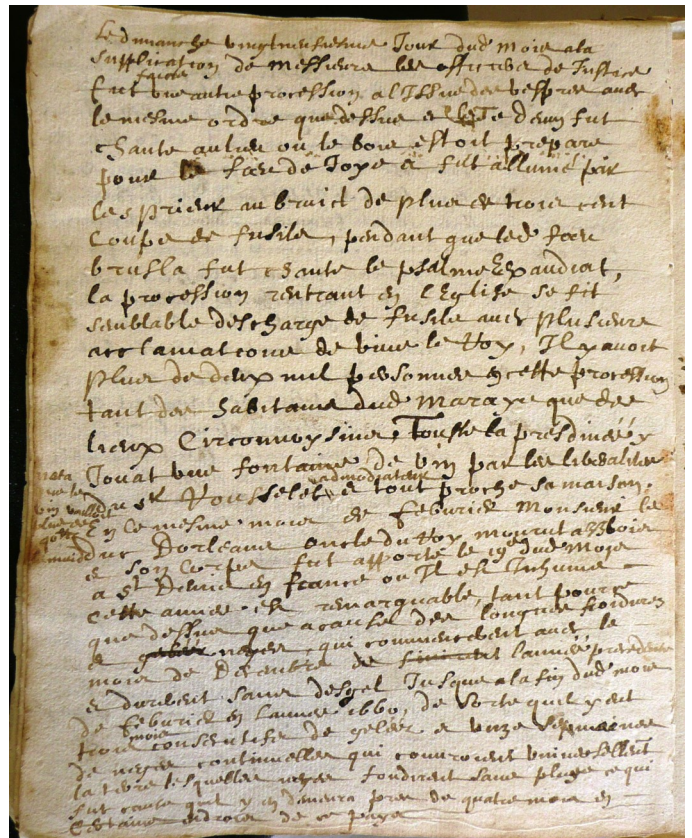 Le dimanche vingtneufiesme Jour dud mois a la
supplication de messieurs les officiers de Justice
fut faicte une autre procession a l'Issue des vespres avec
le mesme ordre que dessus et le Te deum fut
chante au lieu ou le bois estoit prepare
pour le feu de Joye et fut allumé par
les prieur au bruict de plus de trois cent
coups de fusils, pendant que led feu
brusla fut chante le psalme Exaudiat,
la procession rentrant en l'Eglise se fit
semblable descharge de fusils avec plusieurs
acclamations de vive le Roy, Il y avoit
plus de deux mil personnes en cette procession
tant des habitans dud Maraye que des
lieux Circonvoysins, Toutte la presdinée y
Jouat une fontaine de vin par les liberalites
du sr Rousselet admodiateur et tout proche sa maison.
nota que le vin valloit
En ce mesme mois de febvrier Monsieur le
duc Dorleans oncle du Roy mourut a Blois
et son corps fut apporte le 19e dud mois
a St Denis en france ou Il est Inhumé
cette année est remarquable, tant pource
que dessus que a cause des longues froidures
et neges, qui commencerent avec le
mois de Decembre de l'annee precedente
et durerent sans desgel Jusque a la fin dud mois
de febvrier en l'annee 1660, de sorte quil y eut
trois mois consecutifs de gelées et unze sepmaines
de neges continuelles qui couvroient universellemt
la terre lesquelles neges fondirent sans pluye ce qui
fut cause quil y en demeura pres de quatre mois en
certains endrois de ce pays